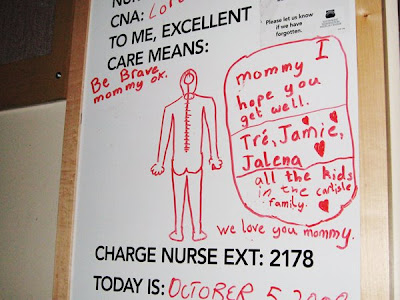 CNA:
TO ME, EXCELLENT
CARE MEANS:
Please let us know
if we have
forgotten.
Be Brave
mommy ok.
I
mommy
hope you
get well.
Tré, Jamie,
Jalena
all the kids
in the carlisle
family.
we love you mommy.
CHARGE NURSE EXT: 2178
TODAY IS: OCTOBER 5